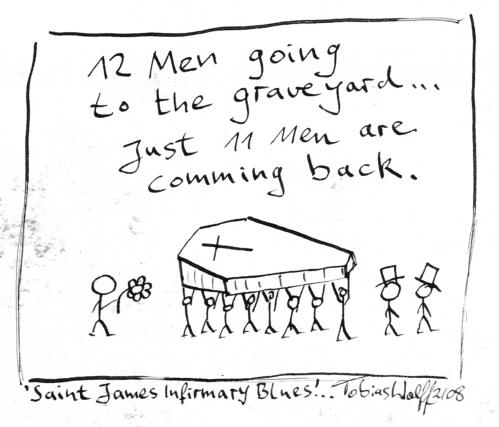 12 Men going
to the graveyard...
Just 11 Men are
comming back.
'Saint James Infirmary Blues'... Tobias Wolff 2/08